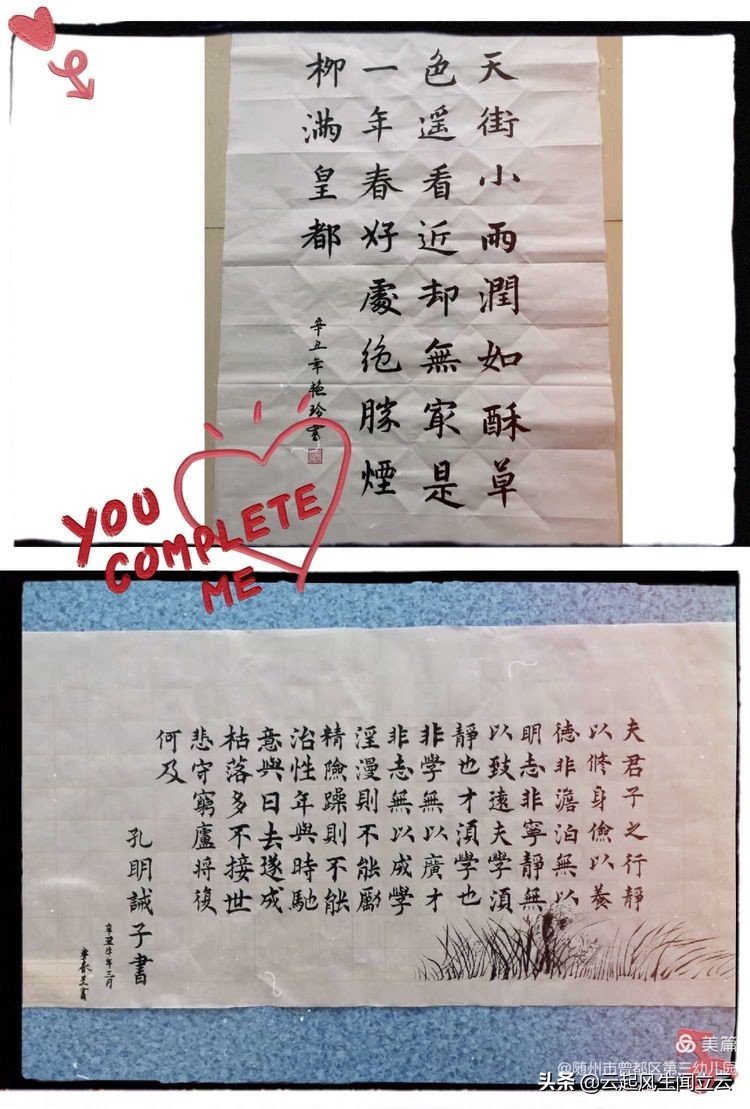 天街小雨潤如酥草
色遥看近却無冣是
一年春好處绝勝煙
柳满皇都
辛丑年艳玲書
YOU
COMPLETE
ME
夫君子之行靜
以修身儉以養
德非澹泊無以
明志非寧靜無
以致遠夫學須
靜也才須學也
非學無以廣才
非志無以成學
淫漫則不能勵
精險躁則不能
治性年與時馳
意與日去遂成
枯落多不接世
悲守窮廬将復
何及
孔明誡子書
辛丑牛年三月
美篇
@随州市曾都区第三幼儿园
头条 @云起风生闻立云